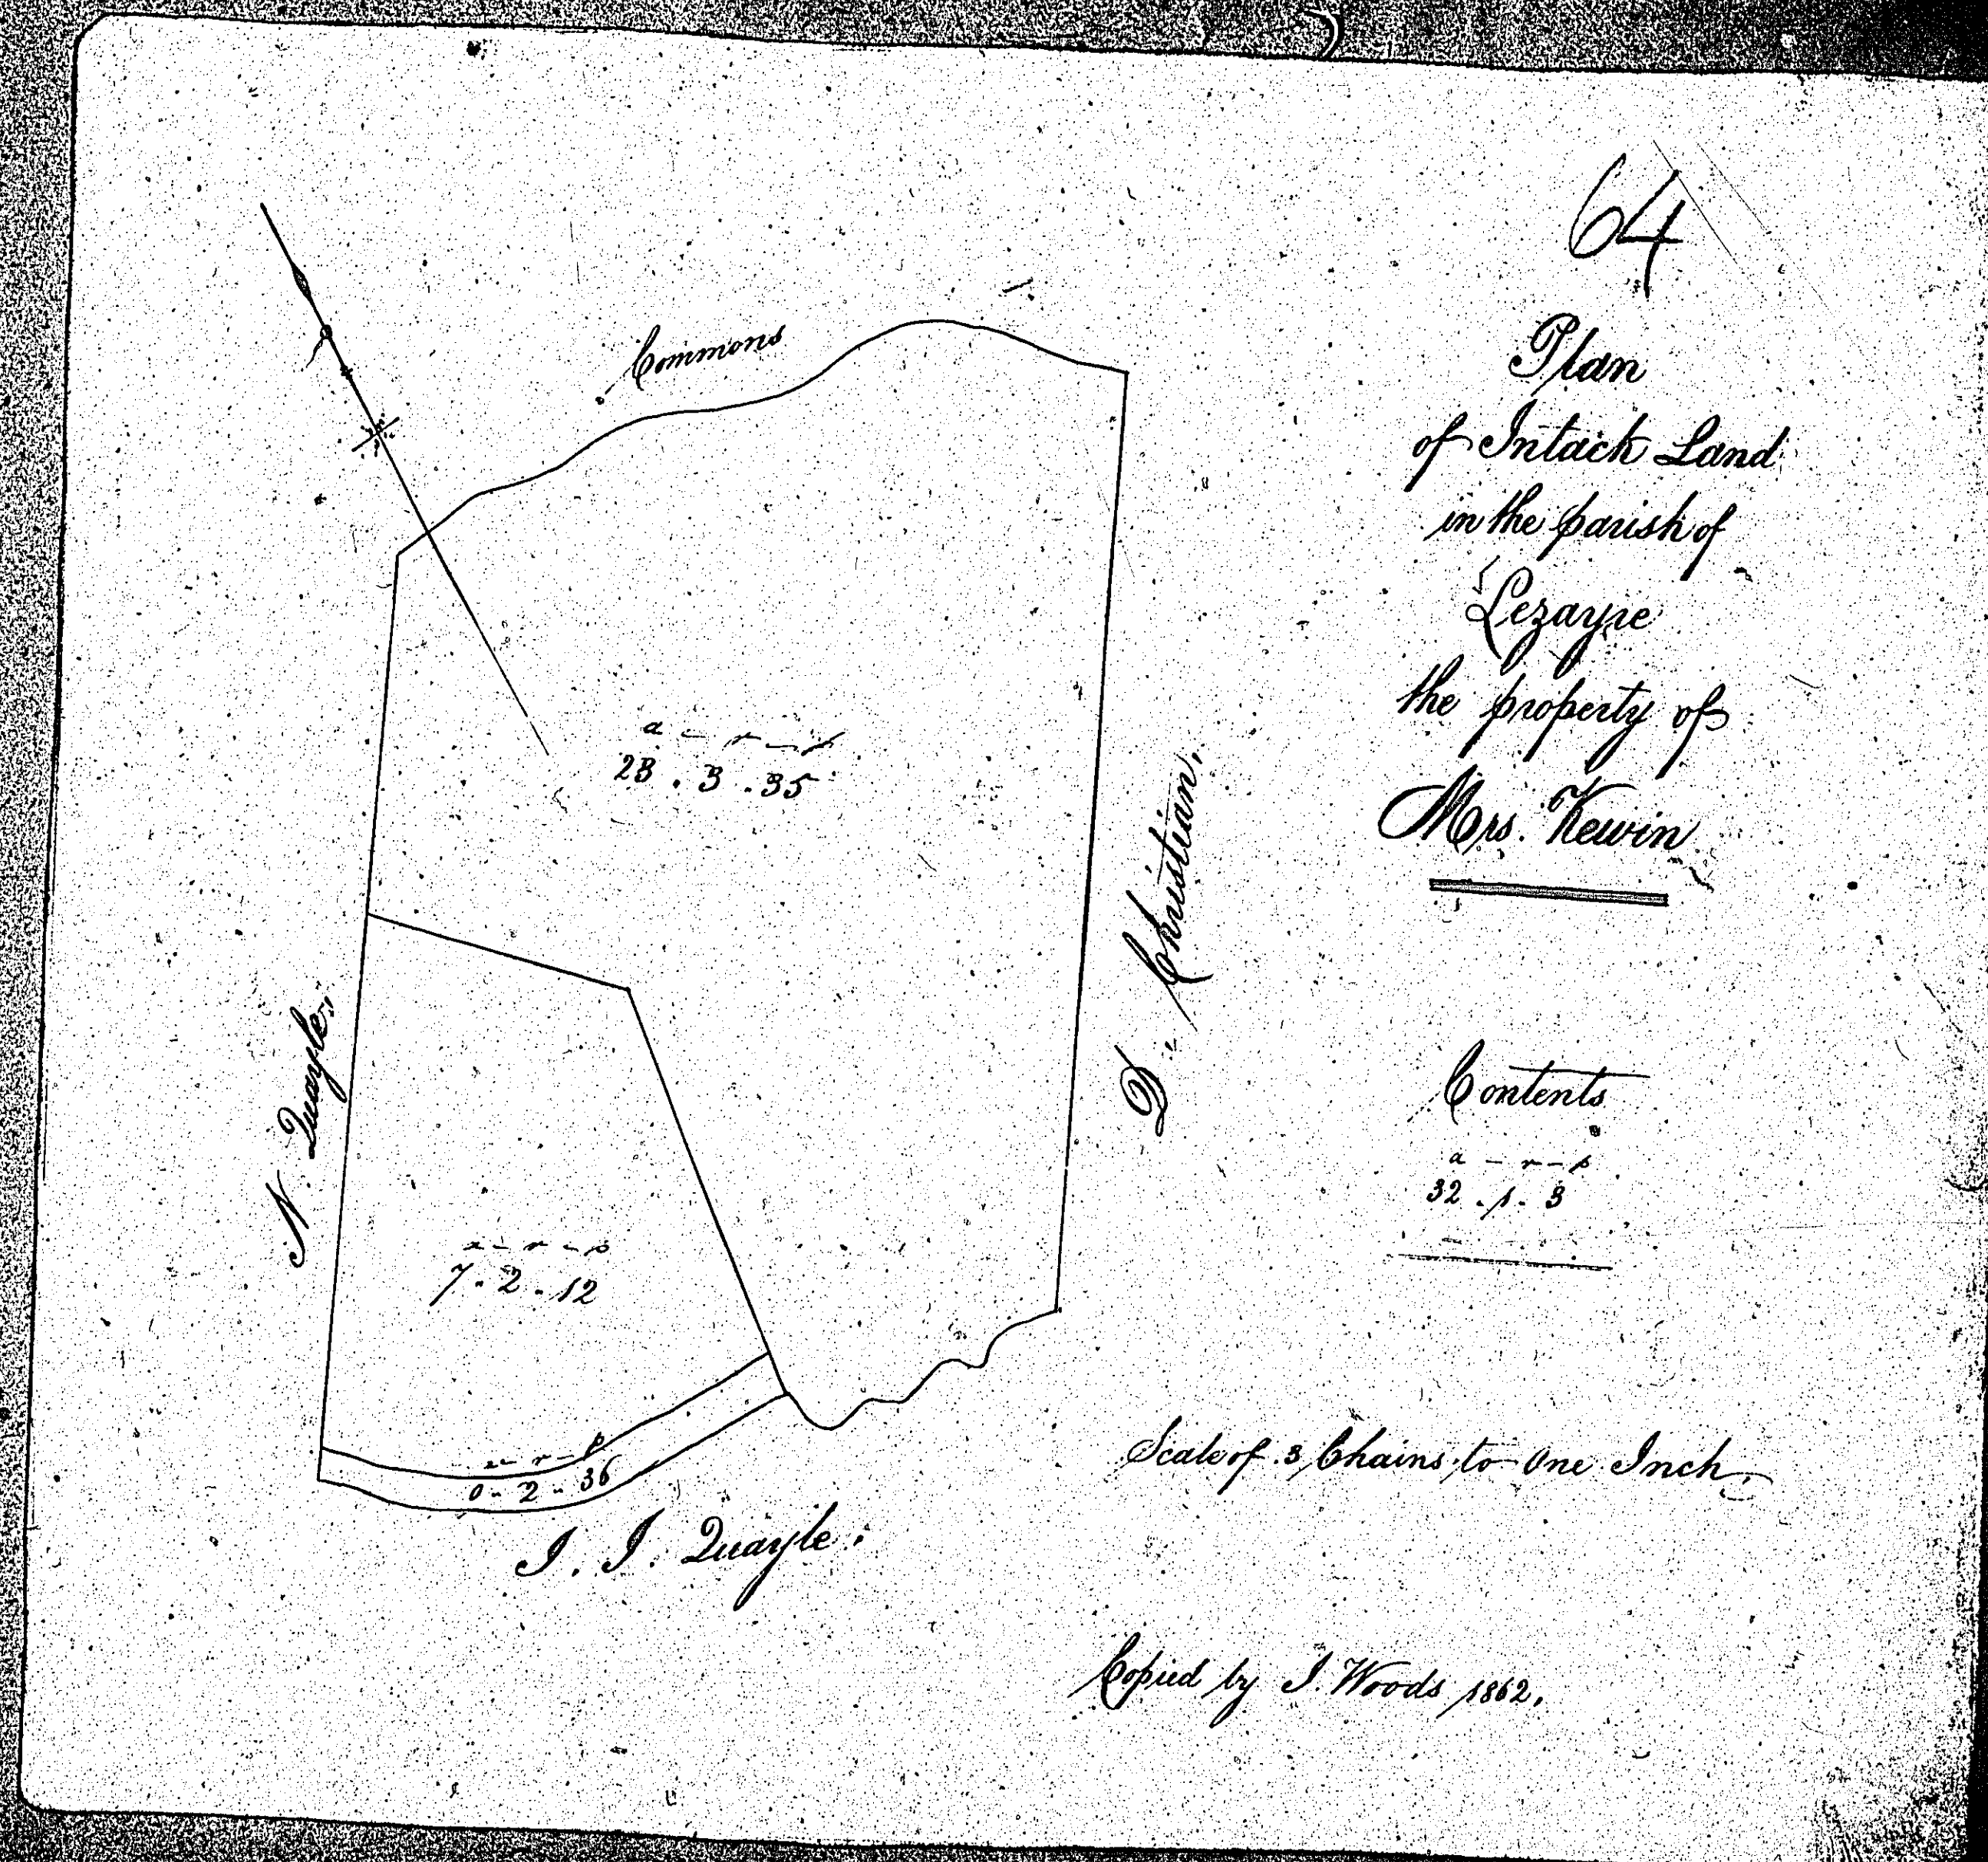 64
Plan
of Intack Land
in the parish of
Lezayre
the property of
Mrs. Kewin
Commons
a - r - p
23 . 3 . 35
D. Christian.
N. Quayle.
a - r - p
7 - 2 - 12
a - r - p
0 - 2 - 36
J. J. Quayle.
Contents
a - r - p
32 - 1 - 3
Scale of 3 Chains to One Inch.
Copied by J. Woods 1862.